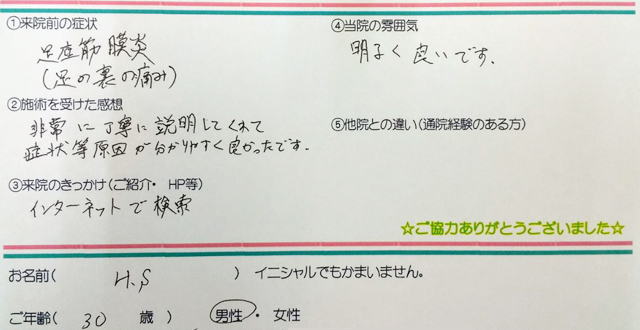 ①来院前の症状
足底筋膜炎
(足の裏の痛み)
②施術を受けた感想
非常に丁寧に説明してくれて
症状等原因が分かりやすく良かったです.
③来院のきっかけ(ご紹介・ HP等)
インターネットで検索
④当院の雰囲気
明るく良いです.
⑤他院との違い(通院経験のある方)
☆ご協力ありがとうございました☆
お名前( H.S ) イニシャルでもかまいません。
ご年齢( 30 歳 ) 男性・女性